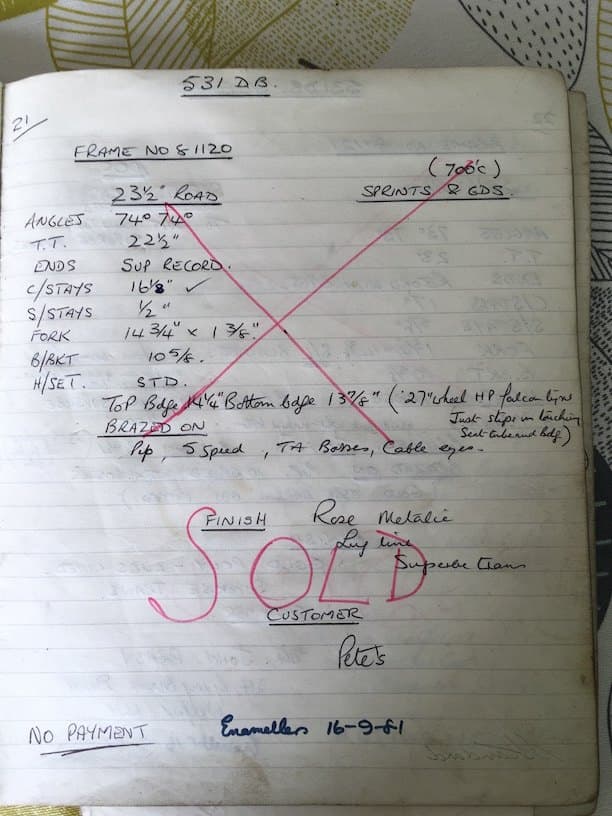 531 DB.
21
FRAME NO 81120
(700c)
23½" ROAD SPRINTS & GDS.
ANGLES 74° 74°
T.T. 22½"
ENDS SUP RECORD.
C/STAYS 16⅛" ✓
S/STAYS ½"
FORK 14 3/4" x 1 3/8".
B/BKT 10 5/8.
H/SET. STD.
Top Bdge 14¼" Bottom bdge 13⅞" (27" wheel HP falcon tyre
Just slips in touching
Seat tube and bdg)
BRAZED ON
Pip, 5 Speed, TA Bosses, Cable eyes.
FINISH Rose Metalic
Lug line
Superbe trans
SOLD
CUSTOMER
Pete's
NO PAYMENT Enamellers 16-9-81